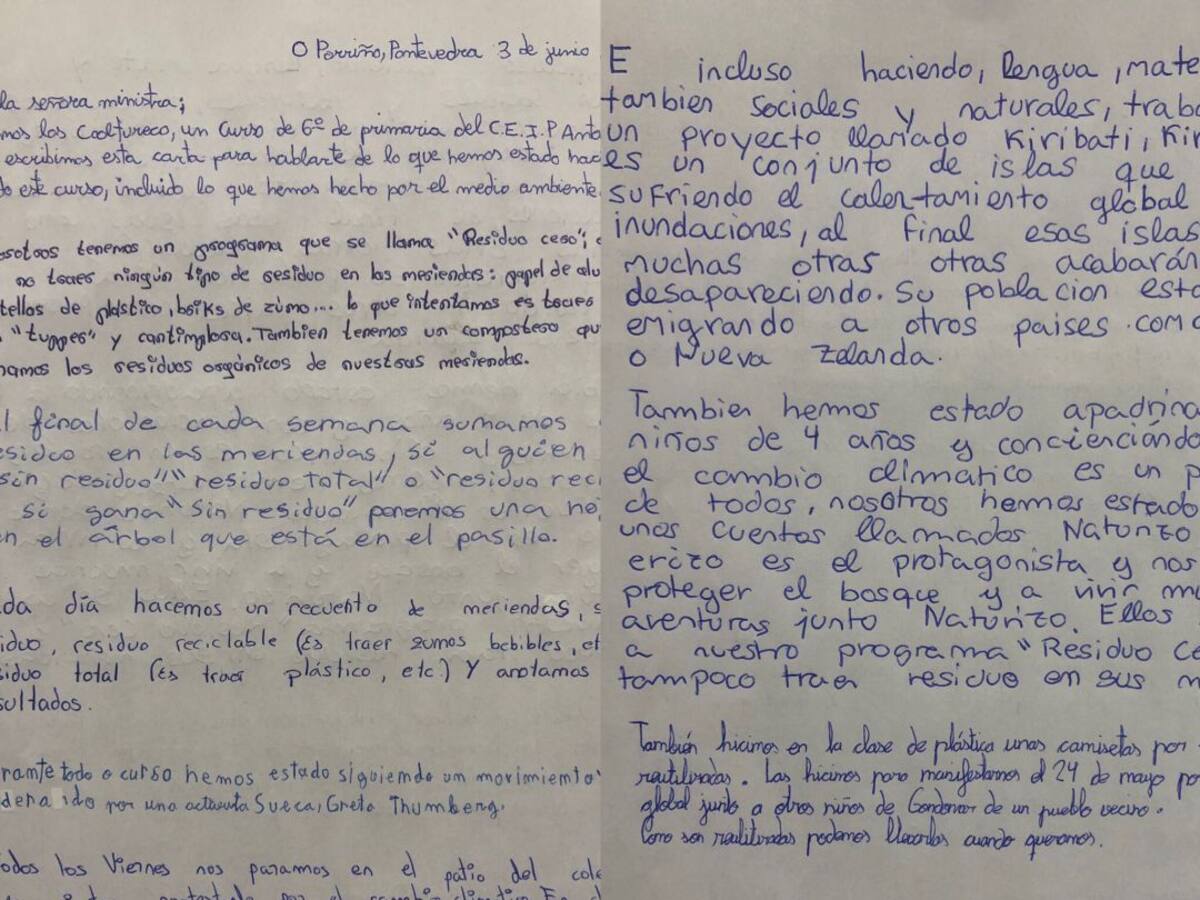 O Porriño, Pontevedra 3 de junio
la señora ministra;
mos los Cooltureco, un curso de 6º de primaria del C.E.I.P Anto
escribimos esta carta para hablarte de lo que hemos estado hac
do este curso, incluido lo que hemos hecho por el medio ambiente.
osotros tenemos un programa que se llama "Residuo cero";
no traer ningún tipo de residuo en las meriendas: papel de alu
tellas de plástico, briks de zumo... lo que intentamos es traer
"tuppes" y cantimplora. Tambien tenemos un compostero qu
namos los residuos orgánicos de nuestras meriendas.
l final de cada semana sumamos
esiduo en las meriendas, si alguien
sin residuo" "residuo total" o "residuo reci
si gana "Sin residuo" ponemos una ho
n el árbol que está en el pasillo.
da día hacemos un recuento de meriendas, s
iduo, residuo reciclable (Es traer zumos bebibles, et
siduo total (Es traer plástico, etc.) Y anotamos
sultados.
rante todo o curso hemos estado siguiendo un movimiento
derando por una activista Sueca, Greta Thumberg.
odos los Viernes nos paramos en el patio del cole
E incluso haciendo, lengua, mate
tambien sociales y naturales, trab
un proyecto llamado Kiribati, Kir
es un conjunto de islas que
sufriendo el calentamiento global
inundaciones, al final esas islas
muchas otras otras acabarán
desapareciendo. Su poblacion esta
emigrando a otros paises como
o Nueva Zelanda.
Tambien hemos estado apadrina
niños de 4 años y concienciando
el cambio climático es un p
de todos, nosotros hemos estado
unos cuentos llamados Naturizo
erizo es el protagonista y nos
proteger el bosque y a vivir mu
aventuras junto Naturizo. Ellos
a nuestro programa "Residuo Ce
tampoco traer residuo en sus m
También hicimos en la clase de plástica unas camisetas por
reutilizadas. Las hicimos para manifestarnos el 24 de mayo por
global junto a otros niños de Gondomar de un pueblo vecino.
Como son reutilizadas podemos llevarlas cuando queramos.